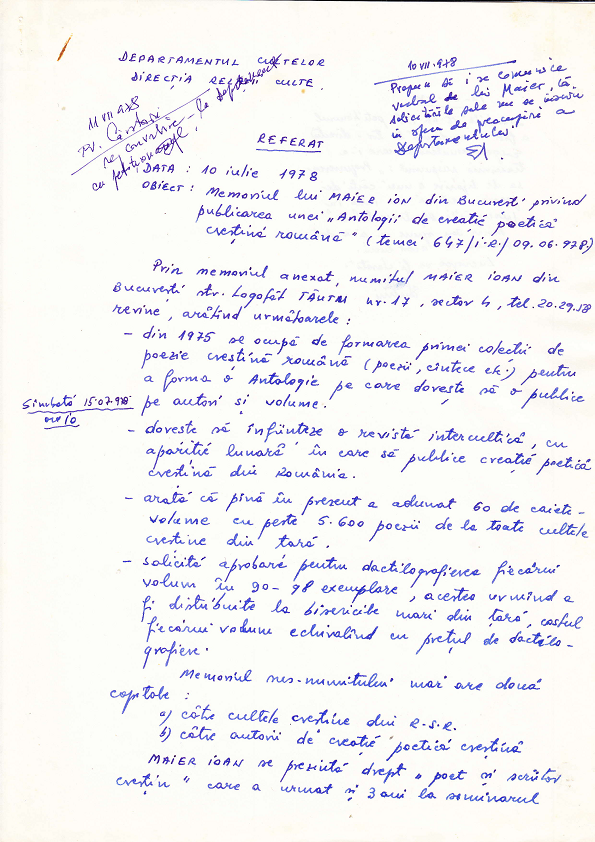 DEPARTAMENTUL CULTELOR
DIRECȚIA RELAȚII CULTE.
10 VII 978
Propun să i se comunice
verbal de lui Maier, că
solicitările sale nu se înscriu
în sfera de preocupări a
Departamentului.
11 VII 978
REFERAT
DATA : 10 iulie 1978
OBIECT : Memoriul lui MAIER ION din București privind
publicarea unei „Antologii de creație poetică
creștină română" (temei 647/I.R./09.06.978)
Prin memoriul anexat, numitul MAIER IOAN din
București str. Logofăt TĂUTU nr. 17, sector 4, tel. 20.29.58
revine, arătînd următoarele :
– din 1975 se ocupă de formarea primei colecții de
poezie creștină română (poezii, cîntece etc.) pentru
a forma o Antologie pe care dovește să o publice
pe autori și volume.
Sîmbătă 15.07.978
ora 10
– dovește să înființeze o revistă intercultică, cu
apariție lunară în care să publice creație poetică
creștină din România.
– arată că pînă în prezent a adunat 60 de caiete-
volume cu peste 5.600 poezii de la toate cultele
creștine din țară.
– solicită aprobare pentru dactilografierea fiecărui
volum în 90–98 exemplare, acestea urmînd a
fi distribuite la bisericile mari din țară, costul
fiecărui volum echivalînd cu prețul de dactilo-
grafiere.
Memoriul sus-numitului mai are două
capitole :
a) către cultele creștine din R.S.R.
b) către autorii de creație poetică creștină
MAIER IOAN se prezintă drept „poet și scriitor
creștin" care a urmat și 3 ani la seminarul